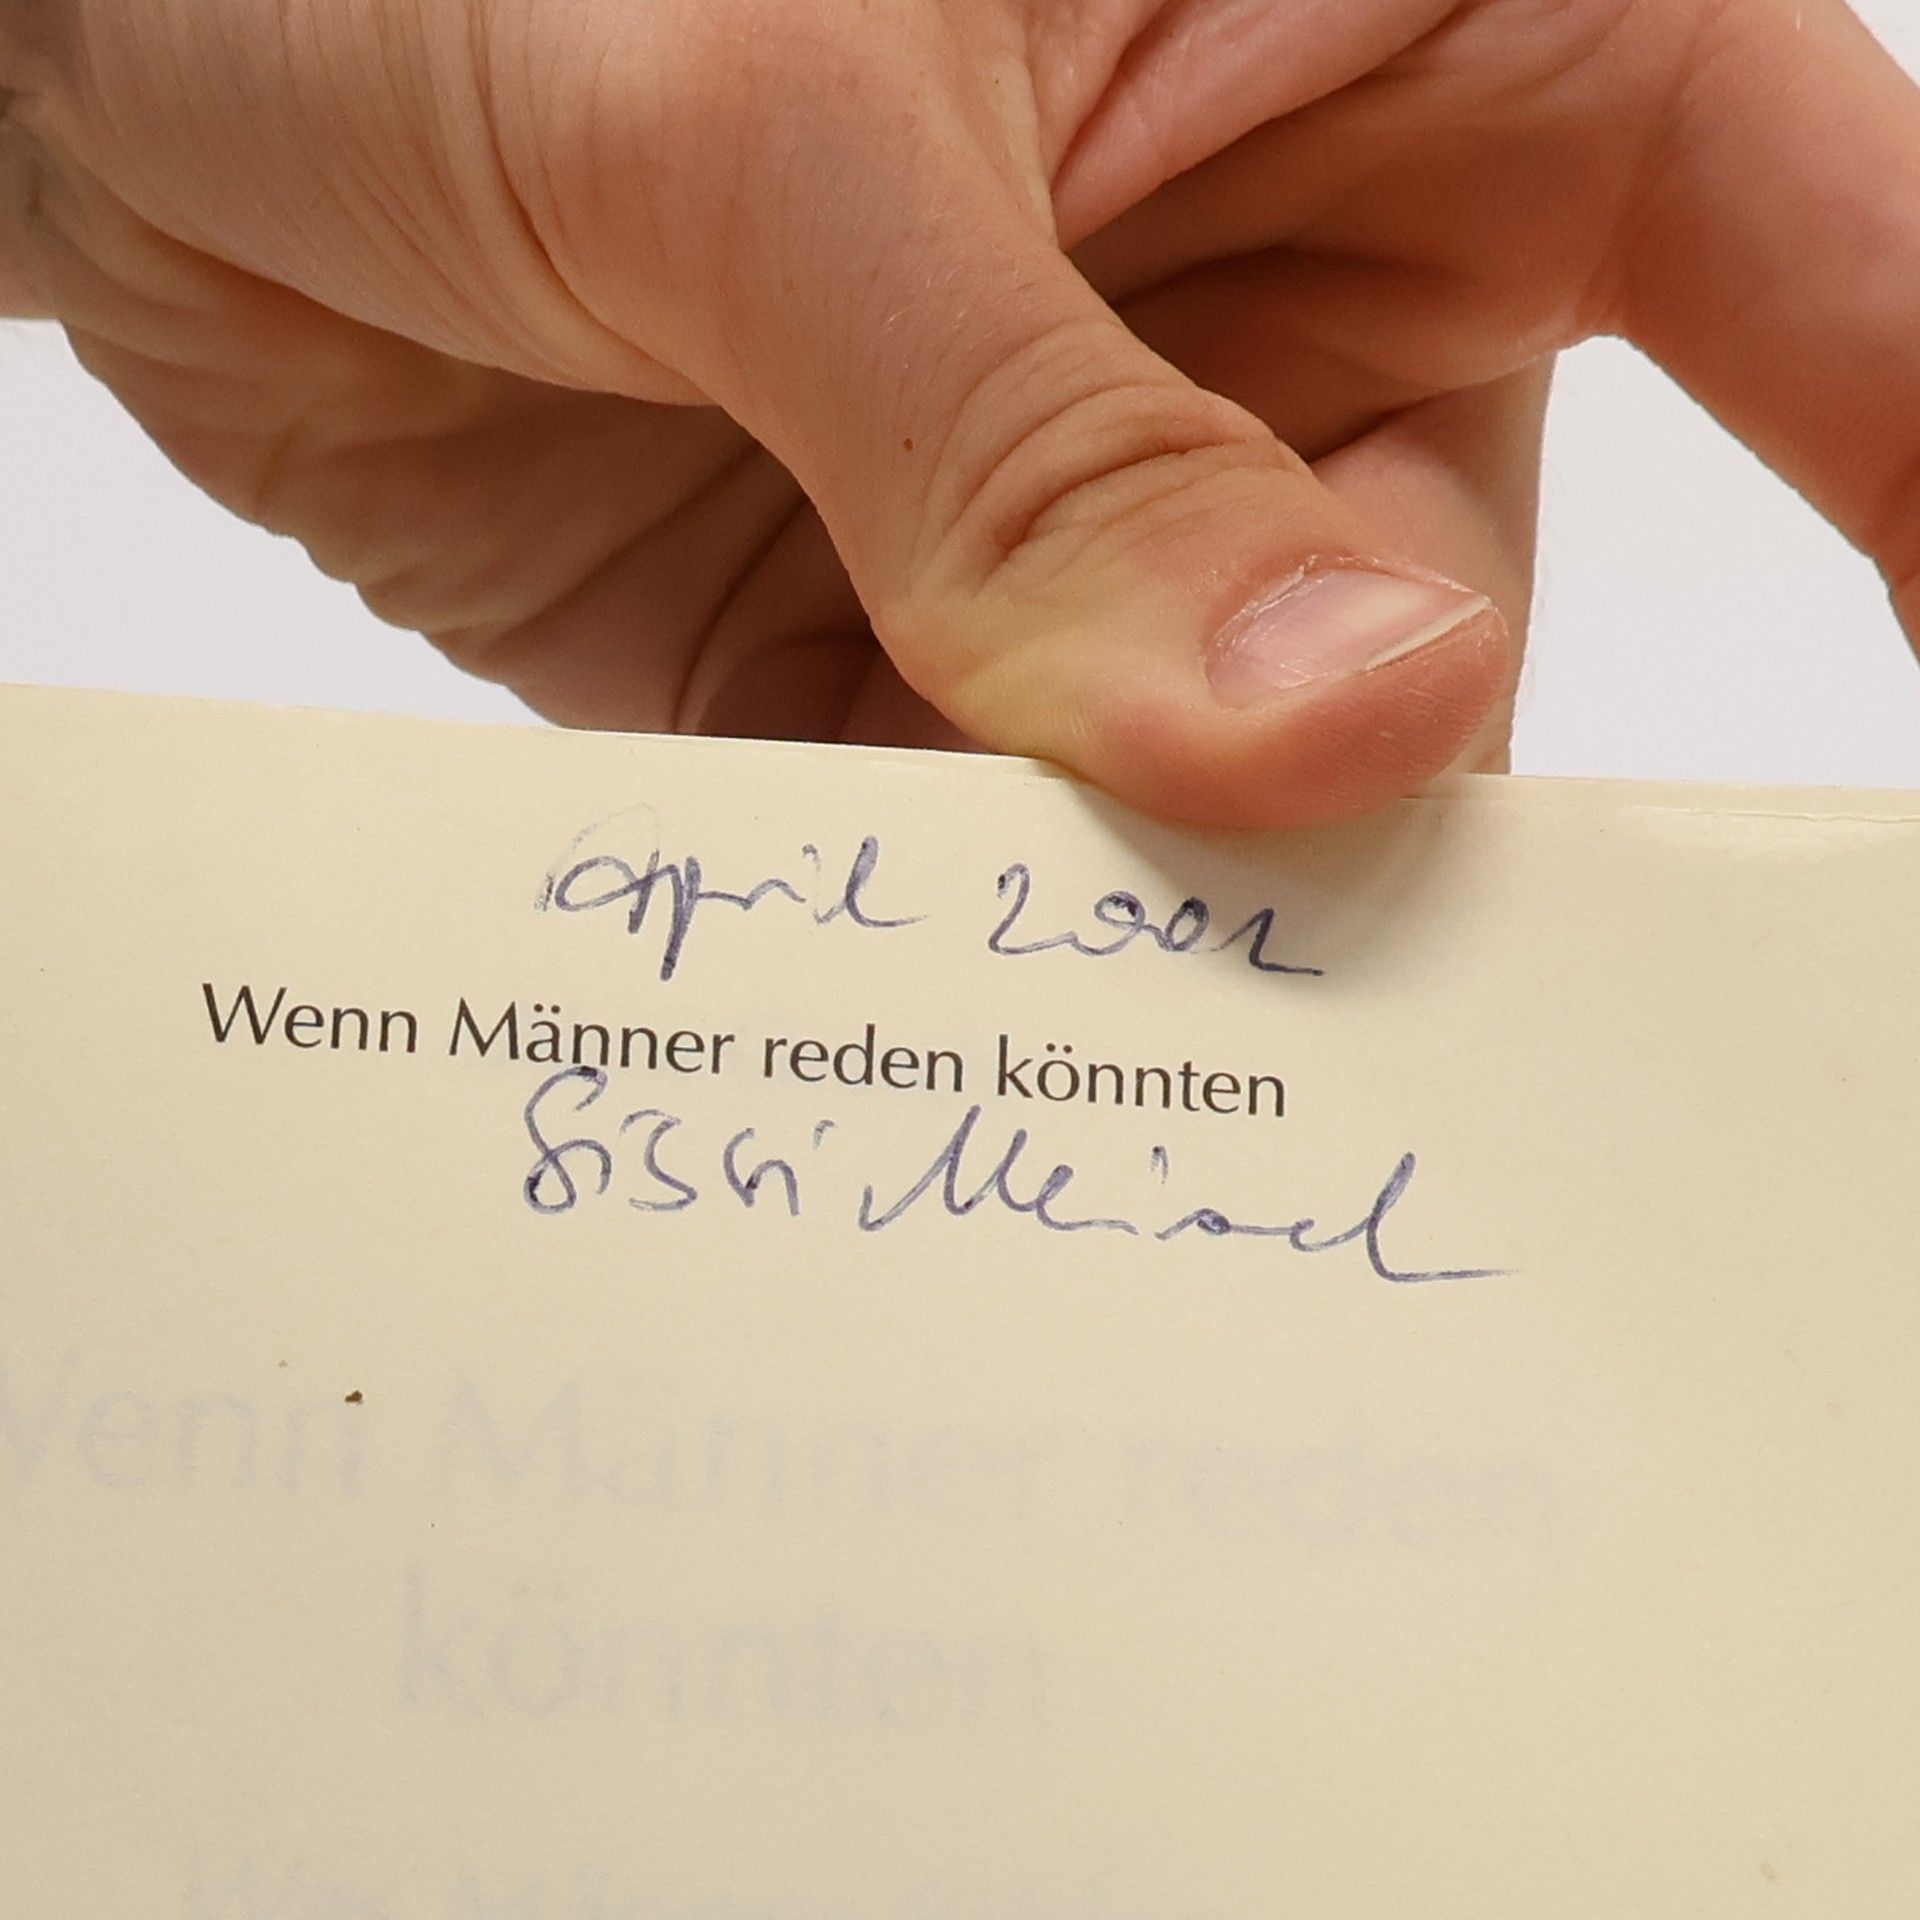 April 2002
Wenn Männer reden könnten
Sissi Meisel
Wenn Männer reden
könnten